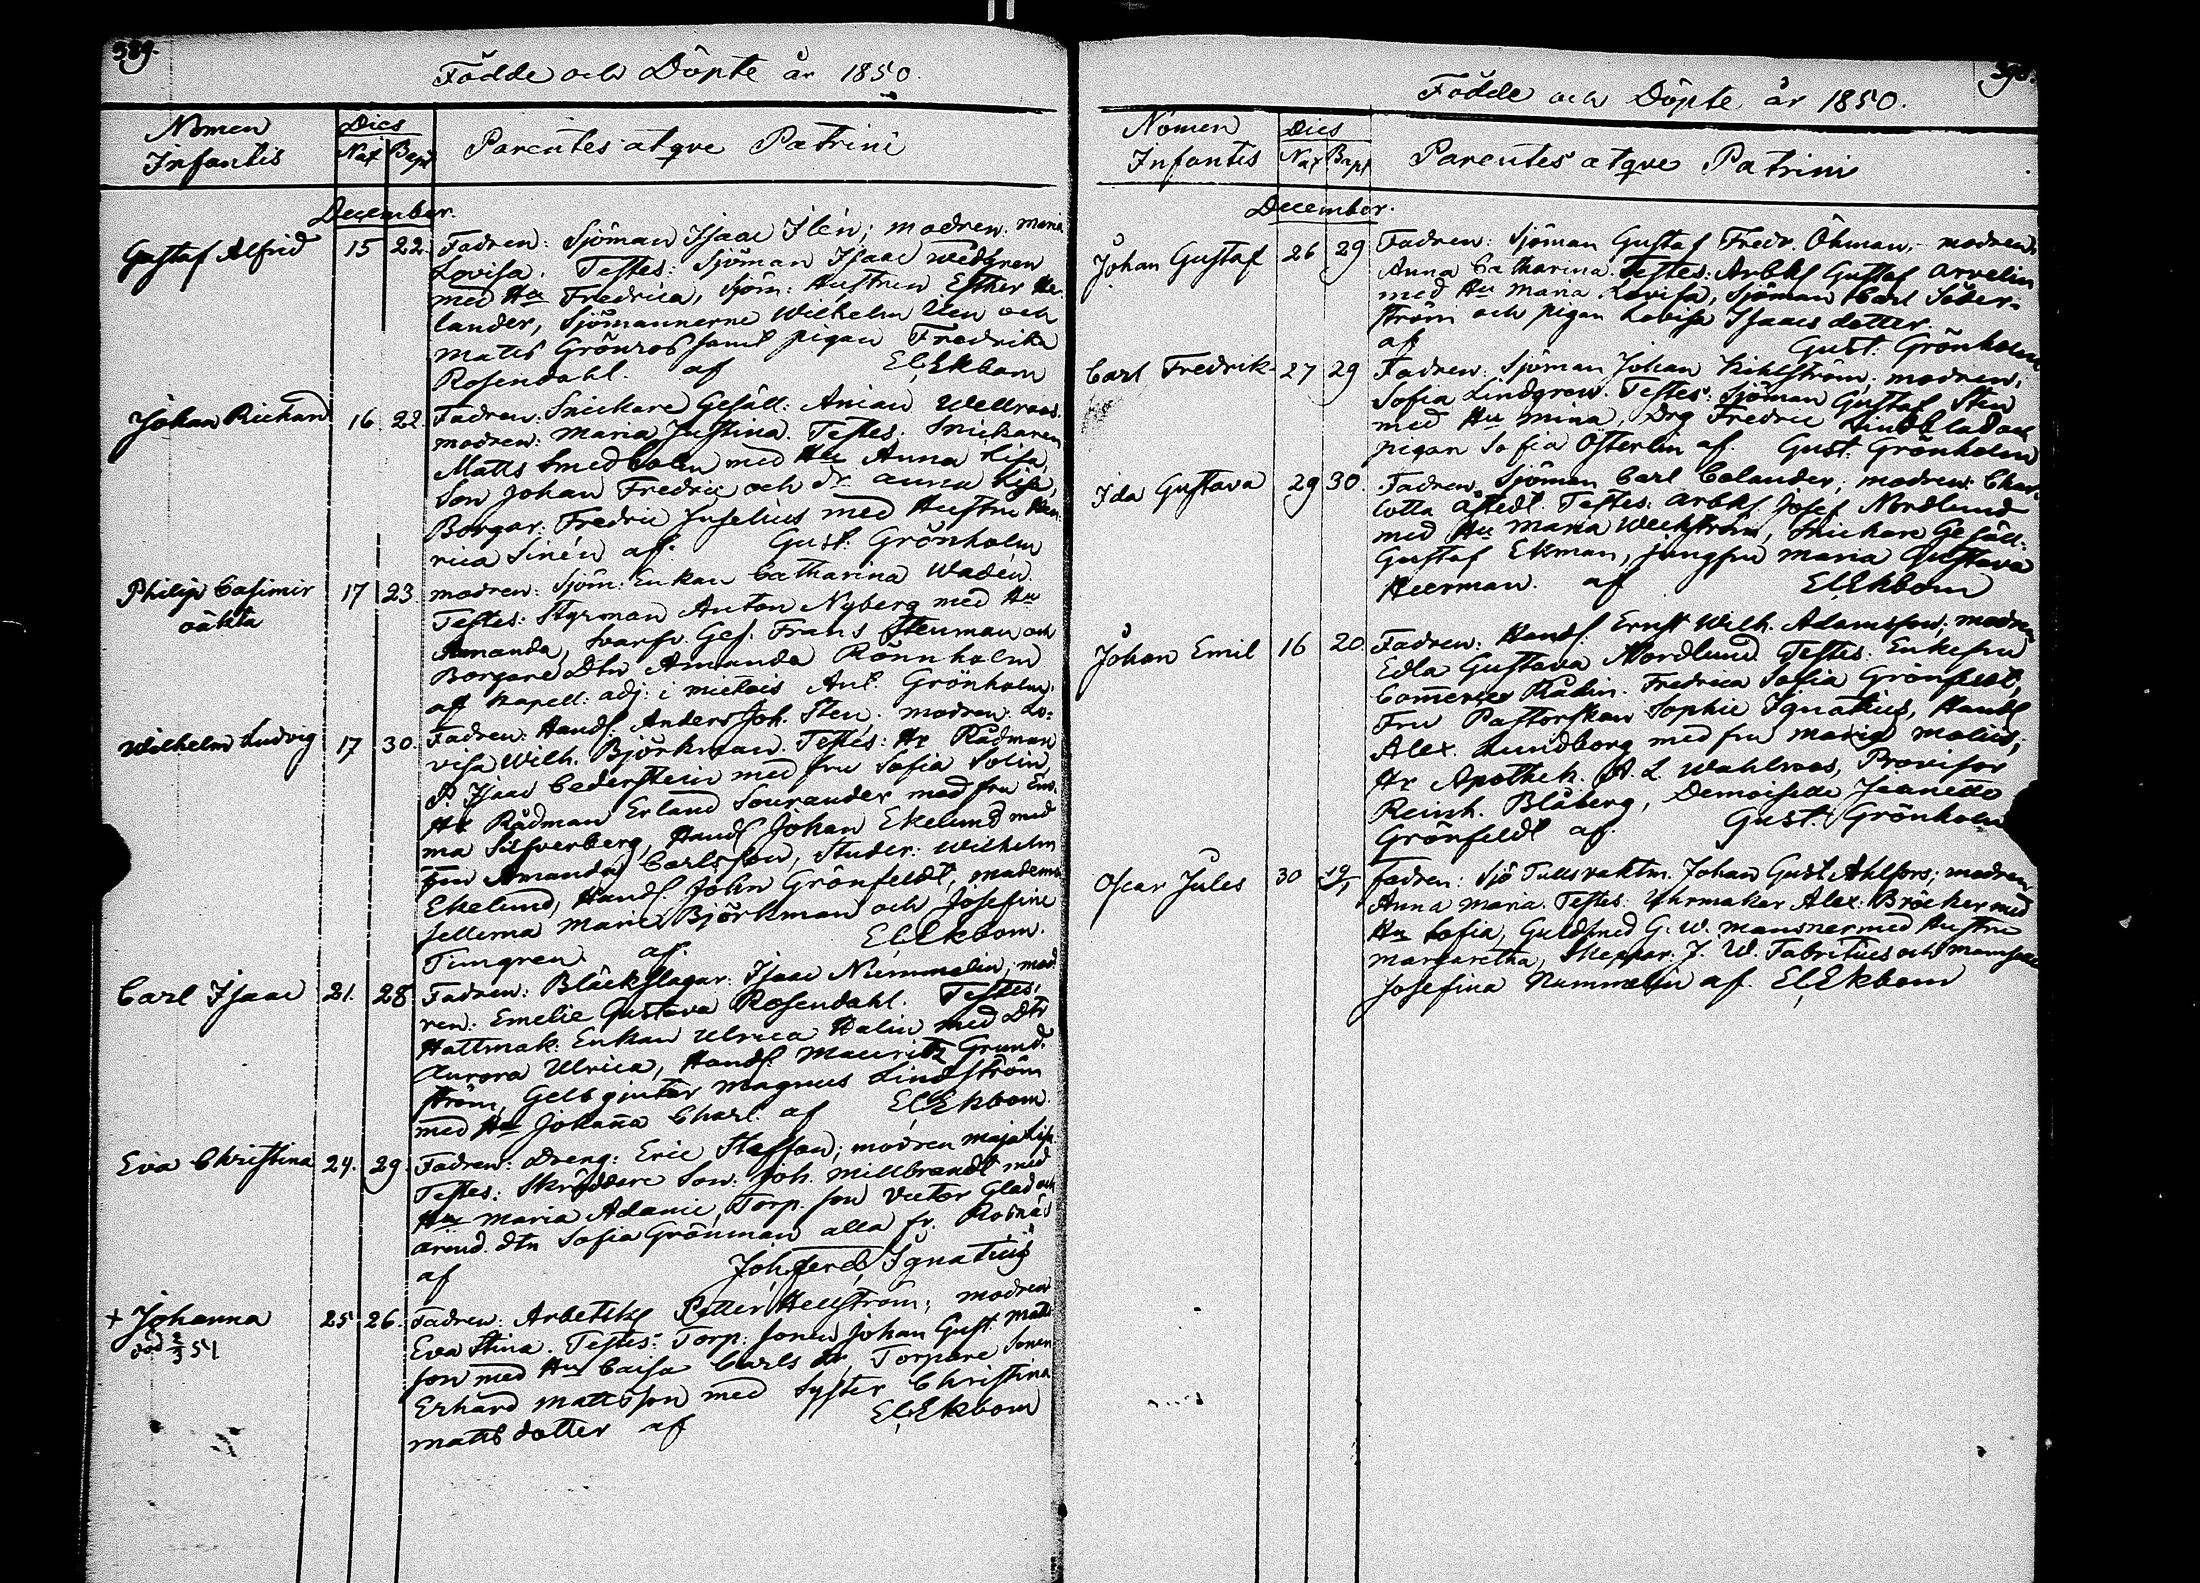 389.
Födde och Döpte år 1850.
Nomen Infantis
Dies
Nat Bapt
Parentes atqve Patrini
December.
Gustaf Alfrid 15 22. Fadren: Sjöman Isaac Ilén; modren: Maria
Lovisa. Testes: Sjöman Isaac Wedgren
med Hu Fredrica, Sjöm: Hustrun Esther He-
lander, Sjömannerne Wilhelm Ilen och
Matts Grönros samt pigan Fredrika
Rosendahl. af El. Ekbom
Johan Richard 16 22. Fadren: Snickare Gesäll: Anian Wellroos.
modren: Maria Justina. Testes: Snickaren
Matts Smedholm med Hu Anna Lisa,
Son Johan Fredric och dr Anna Lisa,
Borgar: Fredric Juselius med Hustru Hen-
rica Sinén af. Gust: Grönholm
Philip Casimir 17 23. modren: Sjöm: Enkan Catharina Wadén.
oäkta
Testes: Styrman Anton Nyberg med Hu
Amanda, Svarfv. Ges. Frans Stenman och
Borgare Dtn Amanda Rönnholm
af Kapell: adj: i Mietois Ant. Grönholm.
Wilhelm Ludvig 17 30. Fadren: Handl. Anders Joh. Sten; modren: Lo-
visa Wilh. Björkman. Testes: Hr Rådman
P. Isaac Cederstein med fru Sofia Solin,
Hr Rådman Erland Sourander med fru Em-
ma Silfverberg, Handl Johan Ekelund med
fru Amanda Carlsson, Studer: Wilhelm
Ekelund, Handl. John Grönfeldt, madema
sellerna Marie Björkman och Josefine
Timgren. af. El. Ekbom.
Carl Isaac 21. 28 Fadren: Bläckslagar: Isaac Nummelin; mod
ren: Emelie Gustava Rosendahl. Testes:
Hattmak: Enkan Ulrica Halin med Dtr
Aurora Ulrica, Handl: Mauritz Grund-
ström, Gelbgjutar Magnus Lindström
med Hu Johanna Charl. af El. Ekbom.
Eva Christina 24. 29. Fadren: Dreng: Eric Staffan; modren Maja Lisa
Testes: Skräddare Son: Joh. Millbrandt med
Hu Maria Adamie, Torp. son Victor Glad och
arend. dtn Sofia Grönman alla fr. Rosnäs
af Joh. Ferd. Ignatius
+ Johanna 25 26. Fadren: Arbetskl Petter Hellström; modren
död 2/3 51
Eva Stina. Testes: Torp: Sonen Johan Gust. Matts
son med Hu Caisa Carls dr, Torpare Sonen
Erhard Mattsson med Syster Christina
Matts dotter af El. Ekbom
390.
Födde och Döpte år 1850.
Nomen Infantis
Dies
Nat Bapt
Parentes atqve Patrini
December.
Johan Gustaf 26 29 Fadren: Sjöman Gustaf Fredr. Öhman, modren:
Anna Catharina. Testes: Arbkl Gustaf Arvelin
med Hu Maria Lovisa, Sjöman Carl Söder-
ström och pigan Lovisa Isaacs dotter.
af Gust: Grönholm
Carl Fredrik 27 29 Fadren: Sjöman Johan Kihlström; modren:
Sofia Lindgren. Testes: Sjöman Gustaf Sten
med Hu Mina, Drg Fredric Lindblad och
pigan Sofia Österlin af. Gust. Grönholm
Ida Gustava 29 30. Fadren: Sjöman Carl Calander; modren: Char-
lotta Astedt. Testes: Arbkl Josef Nordlund
med Hu Maria Weckström, Snickare Gesäll.
Gustaf Ekman, jungfru Maria Gustava
Heerman. af El. Ekbom
Johan Emil 16 20. Fadren: Handl. Ernst Wilh. Adamsson; modren
Edla Gustava Nordlund. Testes: Enkefru
Commerce Rådin. Fredrica Sofia Grönfeldt,
Fru Pastorskan Sophie Ignatius, Handl
Alex. Lundborg med fru Maria Molius;
Hr Apothek. A. L. Wahlroos, Provisor
Reinh. Blåberg, Demoiselle Jeanette
Grönfeldt af. Gust. Grönholm
Oscar Jules 30 19/1 fadren: Sjö Tullsvaktm. Johan Gust. Ahlfors; modren
Anna Maria. Testes: Uhrmakar Alex: Bröcker med
Hu Sofia, Guldsmed G. W. Mansner med Hustru
Margaretha, Skeppar: J. W. Fabritius och mamsell
Josefina Nummelin af. El. Ekbom